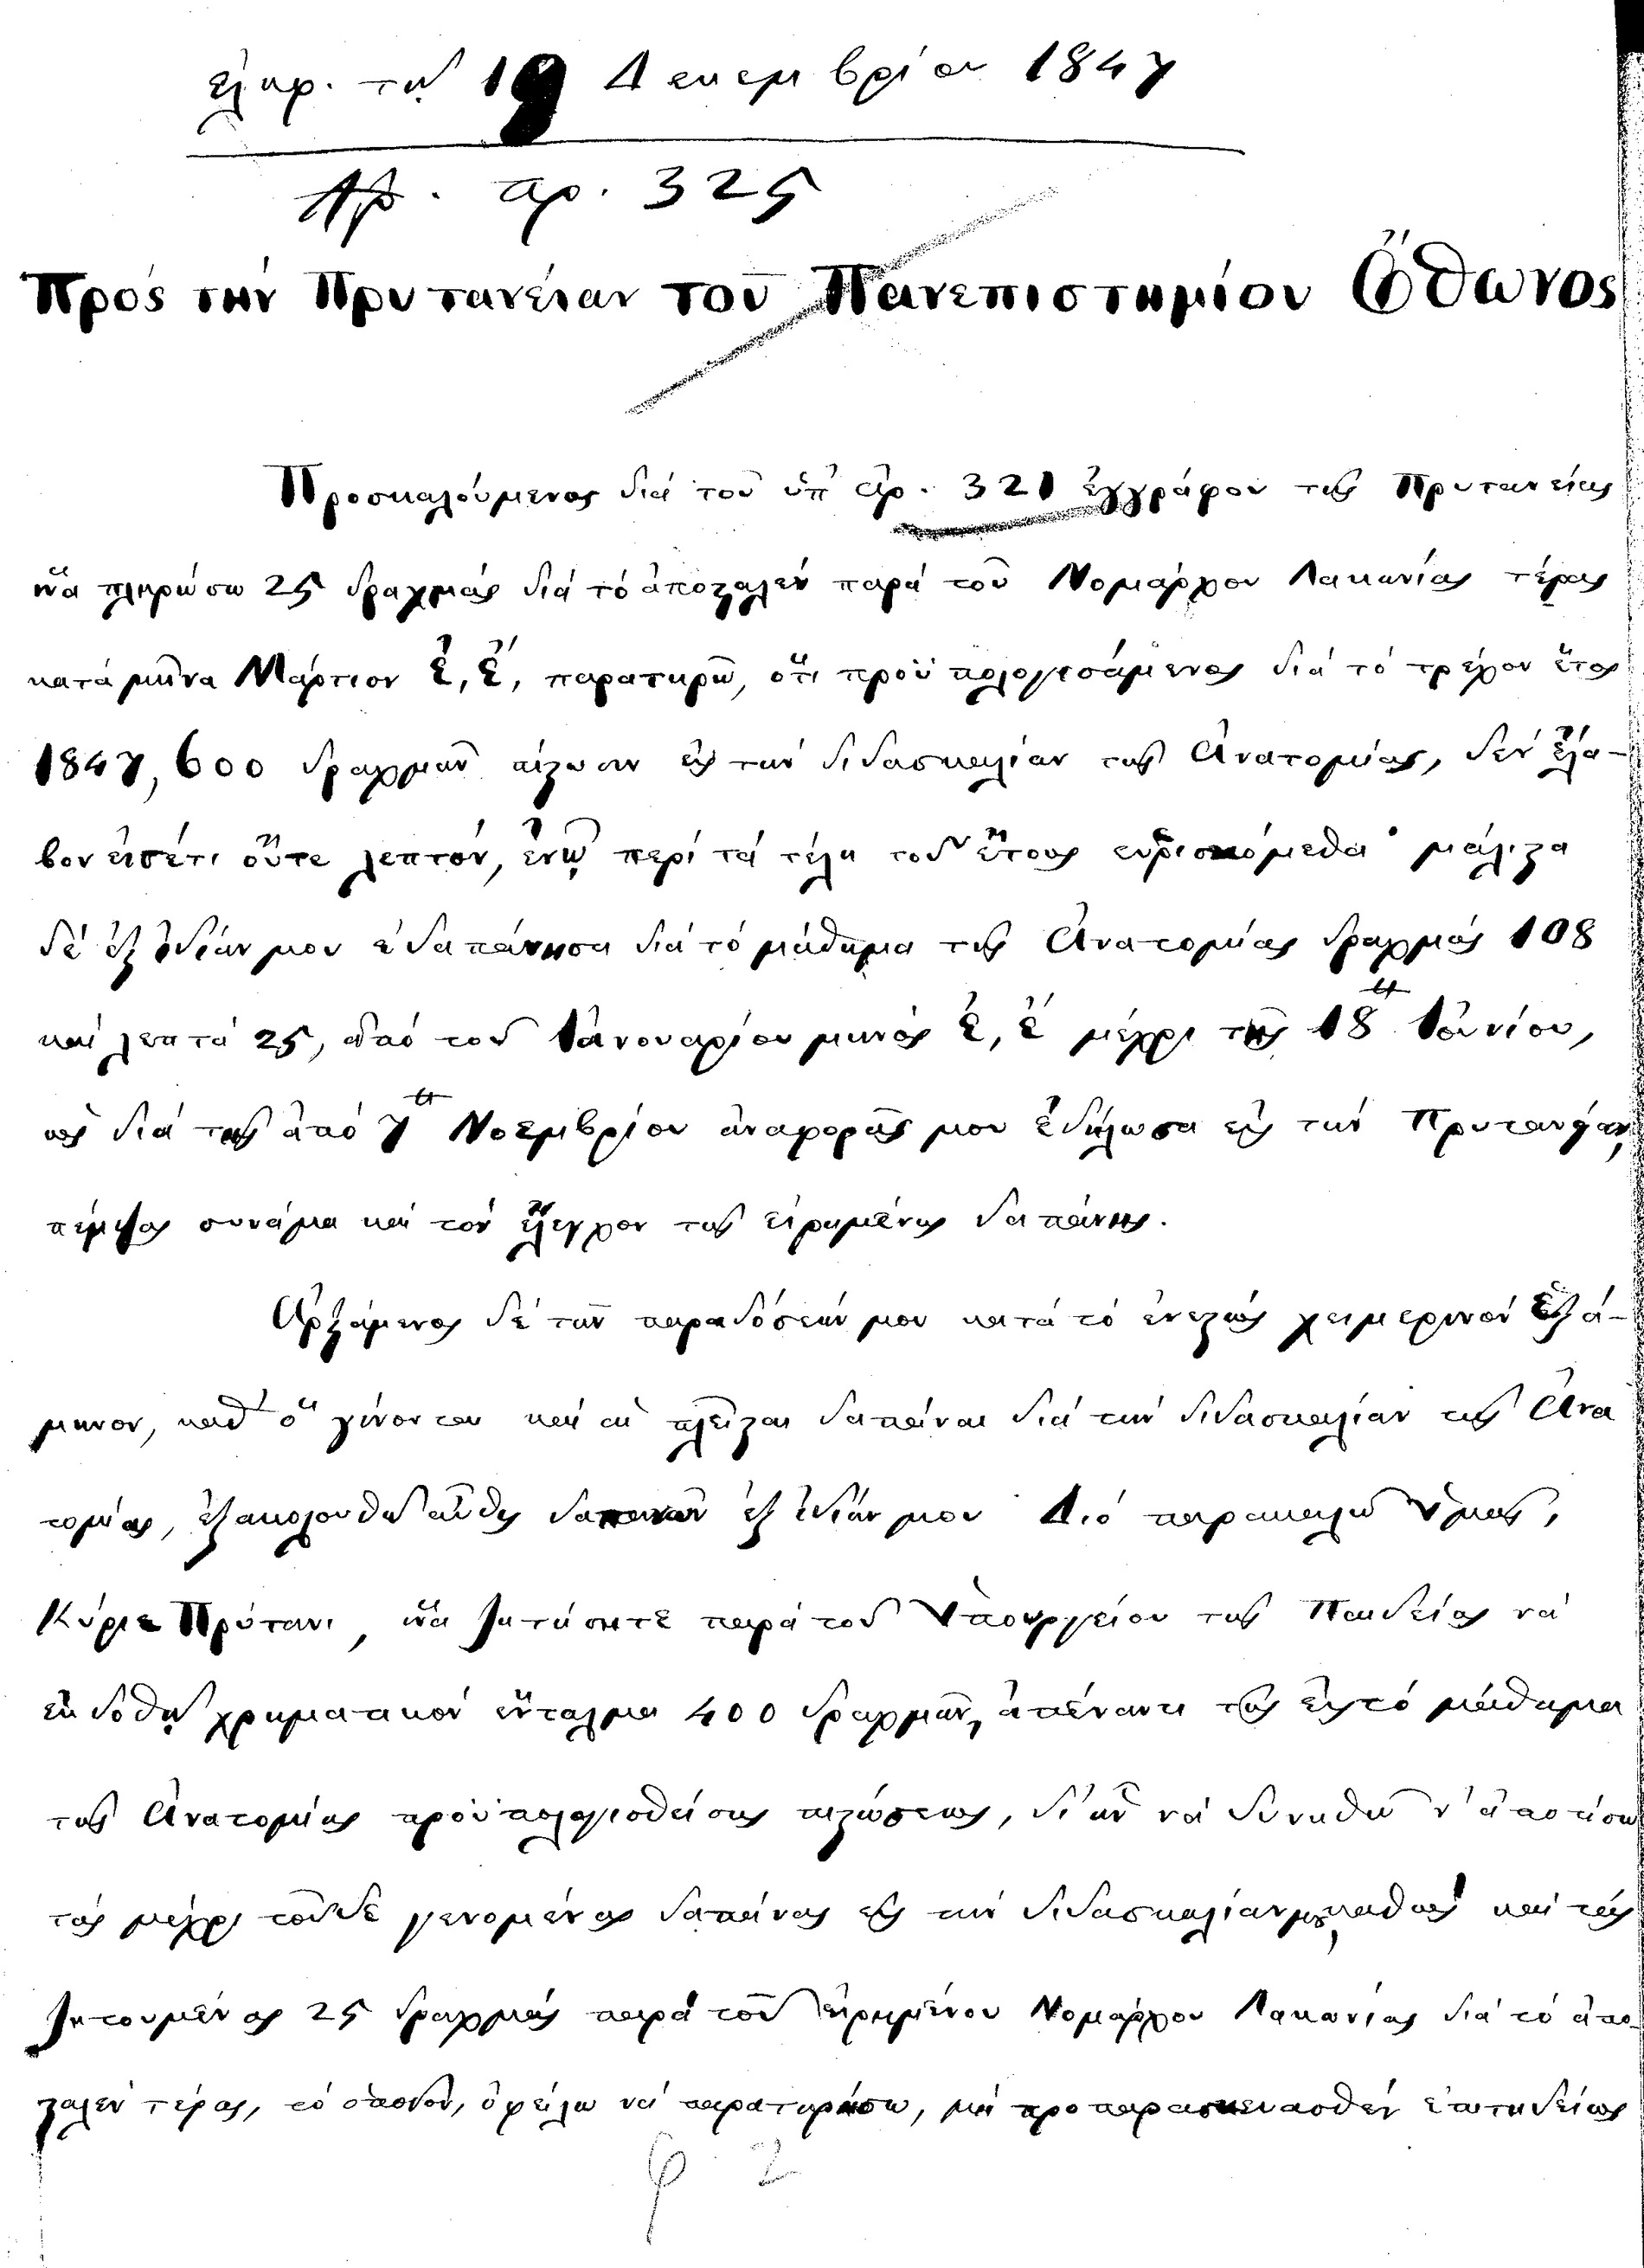 ἐλήφ. τῇ 19 Δεκεμβρίου 1847
Ἀρ. πρ. 325
Πρός τήν Πρυτανείαν τοῦ Πανεπιστημίου Ὄθωνος
Προσκαλούμενος διά τοῦ ὑπ' ἀρ. 321 ἐγγράφου τῆς Πρυτανείας
ἵνα πληρώσω 25 δραχμάς διά τό ἀποσταλέν παρά τοῦ Νομάρχου Λακωνίας τέρας
κατά μῆνα Μάρτιον ἐ, ἐ, παρατηρῶ, ὅτι προϋπολογισάμενος διά τό τρέχον ἔτος
1847, 600 δραχμῶν πίστωσιν εἰς τήν διδασκαλίαν τῆς Ἀνατομίας, δέν ἔλα-
βον εἰσέτι οὔτε λεπτόν, ἐνῷ περί τά τέλη τοῦ ἔτους εὑρισκόμεθα· μάλιστα
δέ ἐξ ἰδίων μου ἐδαπάνησα διά τό μάθημα τῆς Ἀνατομίας δραχμάς 108
καί λεπτά 25, ἀπό τοῦ Ἰανουαρίου μηνός ἐ, ἐ μέχρι τῆς 18 Ἰουνίου,
ὡς διά τῆς ἀπό 7 Νοεμβρίου ἀναφορᾶς μου ἐδήλωσα εἰς τήν Πρυτανείαν,
πέμψας συνάμα καί τόν ἔλεγχον τῆς εἰρημένης δαπάνης.
Ἀρξάμενος δέ τῶν παραδόσεών μου κατά τό ἐνεστώς χειμερινόν ἑξά-
μηνον, καθ' ὅ γίνονται καί αἱ πλεῖσται δαπάναι διά τήν διδασκαλίαν τῆς Ἀνα
τομίας, ἐξακολουθῶ αὖθις δαπανῶν ἐξ ἰδίων μου· Διό παρακαλῶ Ὑμᾶς,
Κύριε Πρύτανι, ἵνα ζητήσητε παρά τοῦ Ὑπουργείου τῆς Παιδείας νά
ἐκδοθῇ χρηματικόν ἔνταλμα 400 δραχμῶν, ἀπέναντι τῆς εἰς τό μάθημα
τῆς Ἀνατομίας προϋπολογισθείσης πιστώσεως, δι' ὧν νά δυνηθῶ ν' ἀποτίσω
τάς μέχρι τοῦδε γενομένας δαπάνας εἰς τήν διδασκαλίαν μου, καθώς καί τάς
ζητουμένας 25 δραχμάς παρά τοῦ εἰρημένου Νομάρχου Λακωνίας διά τό ἀπο-
σταλέν τέρας, τό ὁποῖον, ὀφείλω νά παρατηρήσω, μή προπαρασκευασθέν ἐπιτηδείως